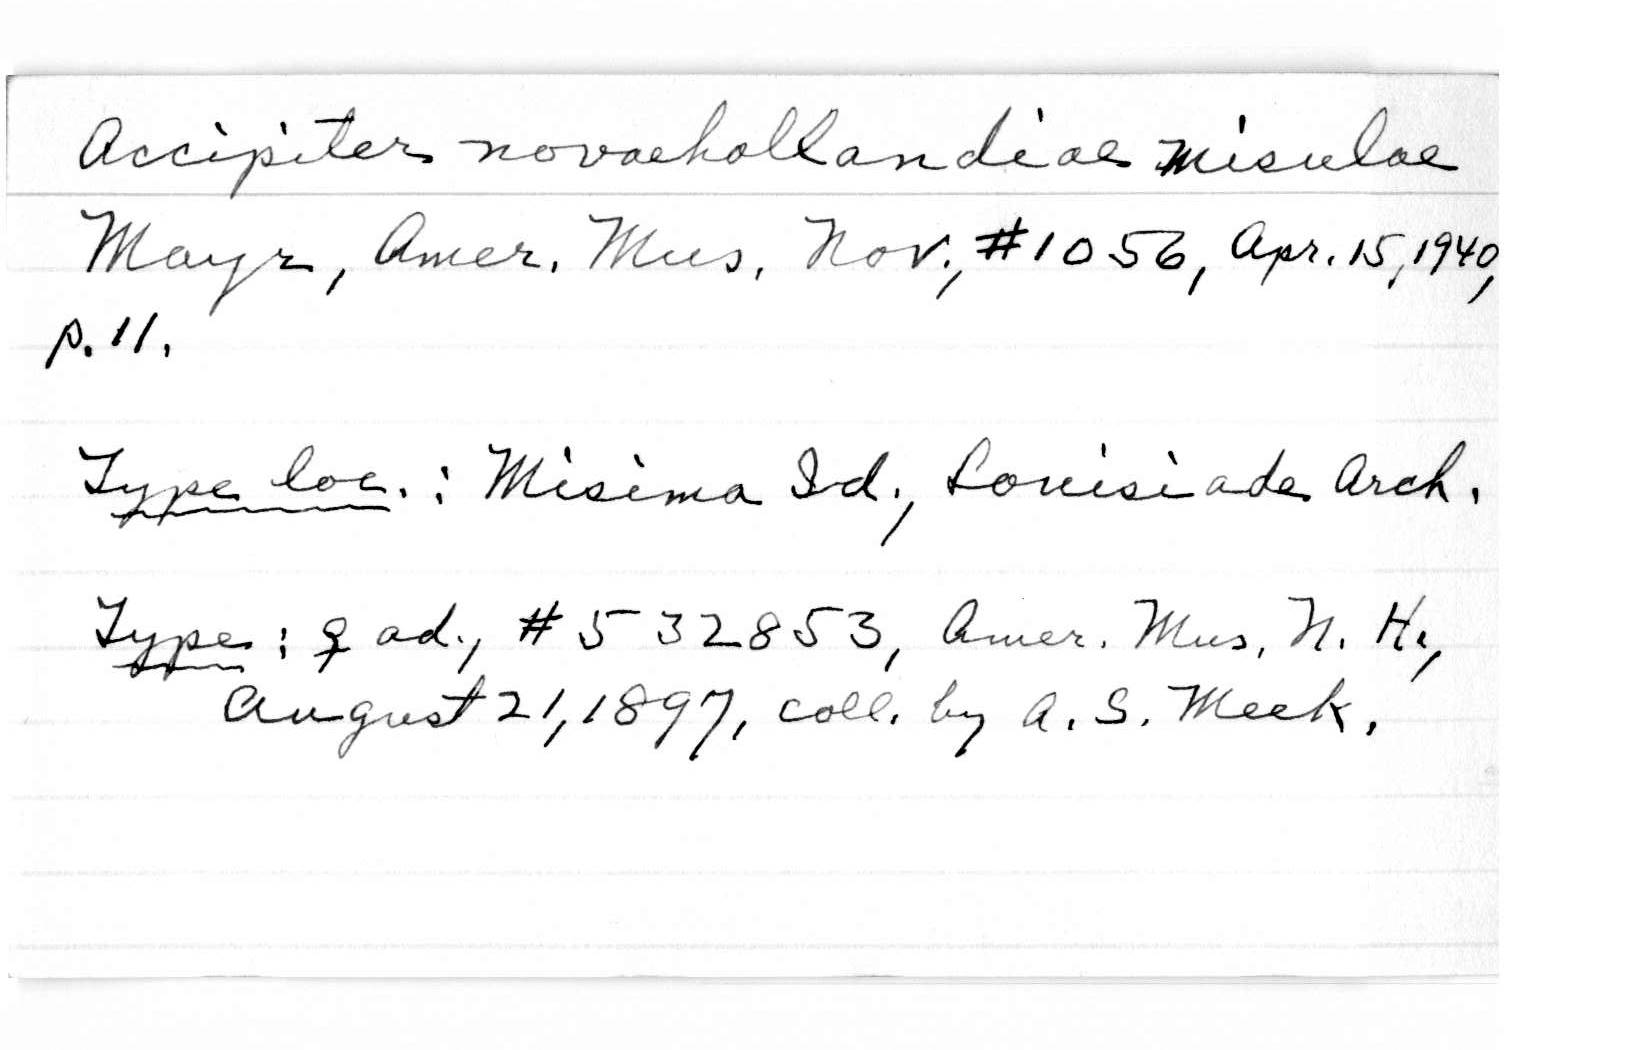 Accipiter novaehollandiae misulae
Mayr, Amer. Mus. Nov., #1056, Apr. 15, 1940,
p. 11.
Type loc. : Misima Id., Louisiade Arch.
Type : ♀ ad., #532853, Amer. Mus. N. H.,
August 21, 1897, coll. by A. S. Meek.